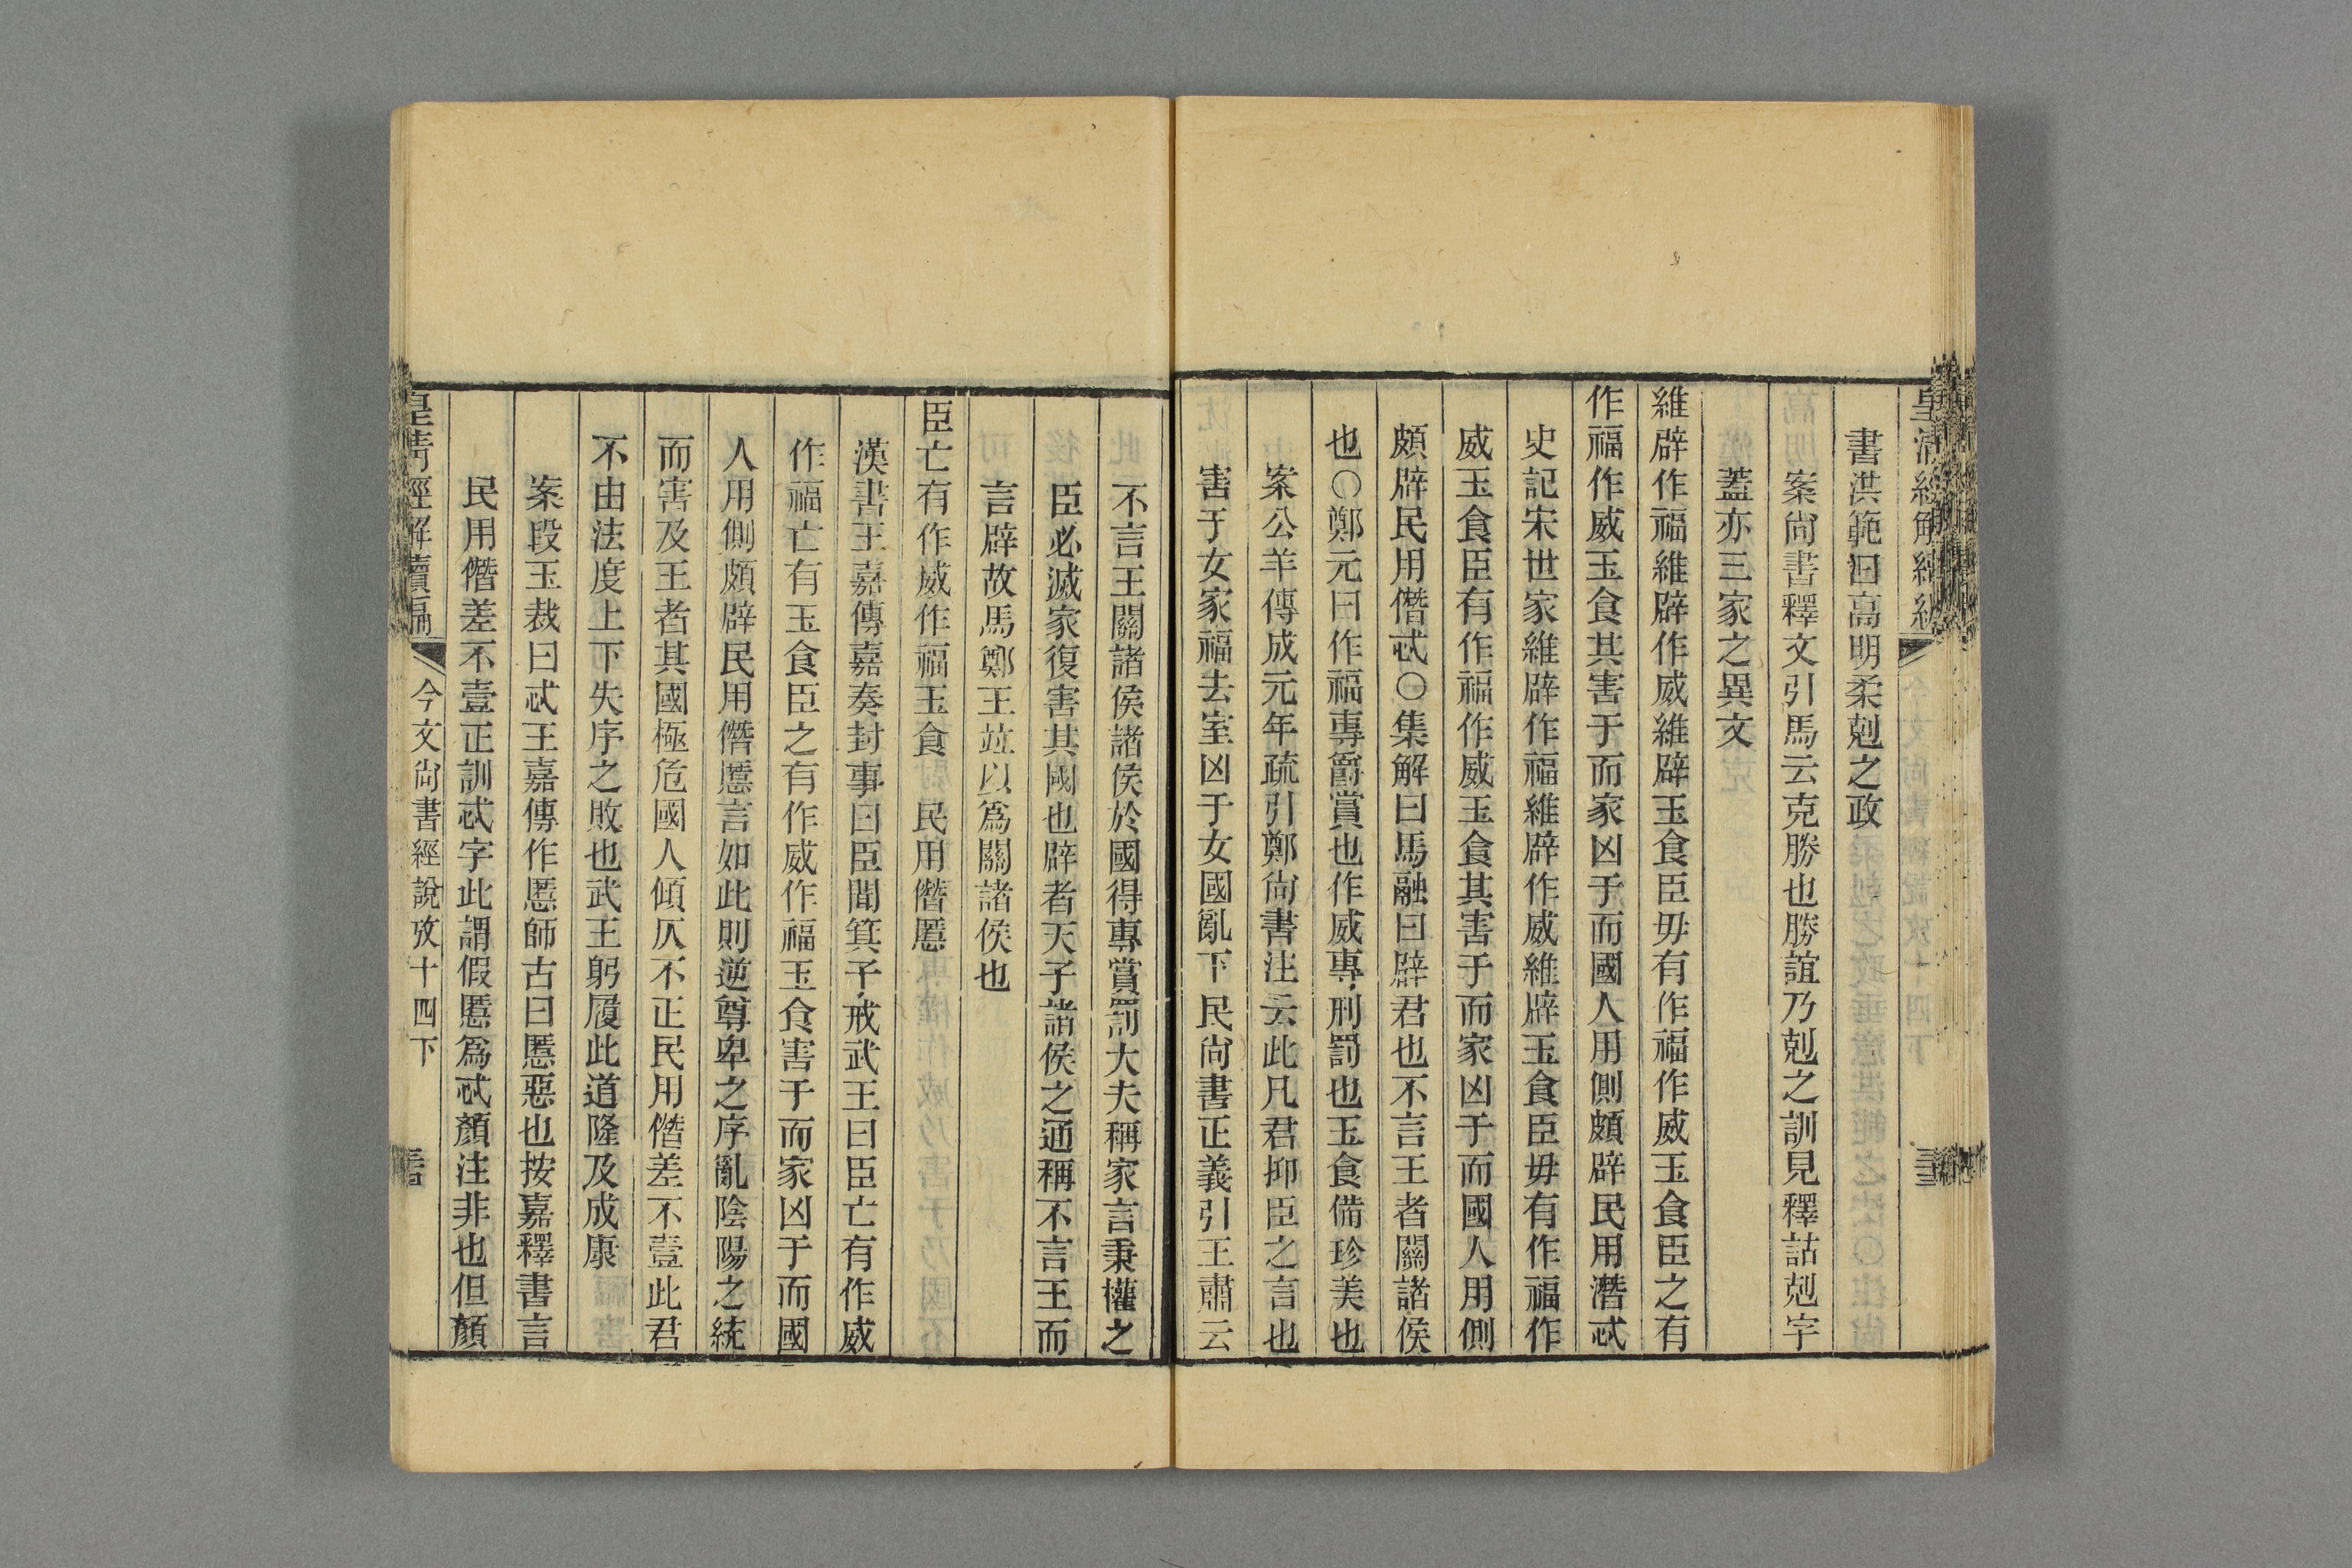 皇清經解續編
書洪範曰高明柔剋之政
案尙書釋文引馬云克勝也勝誼乃剋之訓見釋詁剋字
蓋亦三家之異文
維辟作福維辟作威維辟玉食臣毋有作福作威玉食臣之有
作福作威玉食其害于而家凶于而國人用側頗辟民用潛忒
史記宋世家維辟作福維辟作威維辟玉食臣毋有作福作
威玉食臣有作福作威玉食其害于而家凶于而國人用側
頗辟民用僭忒〇集解曰馬融曰辟君也不言王者關諸侯
也〇鄭元曰作福專爵賞也作威專刑罰也玉食備珍美也
案公羊傳成元年疏引鄭尙書注云此凡君抑臣之言也
害于女家福去室凶于女國亂下民尙書正義引王肅云
不言王關諸侯諸侯於國得專賞罰大夫稱家言秉權之
臣必滅家復害其國也辟者天子諸侯之通稱不言王而
言辟故馬鄭王竝以爲關諸侯也
臣亡有作威作福玉食 民用僭慝
漢書王嘉傳嘉奏封事曰臣聞箕子戒武王曰臣亡有作威
作福亡有玉食臣之有作威作福玉食害于而家凶于而國
人用側頗辟民用僭慝言如此則逆尊卑之序亂陰陽之統
而害及王者其國極危國人傾仄不正民用僭差不壹此君
不由法度上下失序之敗也武王躬履此道隆及成康
案段玉裁曰忒王嘉傳作慝師古曰慝惡也按嘉釋書言
民用僭差不壹正訓忒字此謂假慝爲忒顏注非也但顏
皇清經解續編 今文尙書經說攷十四下